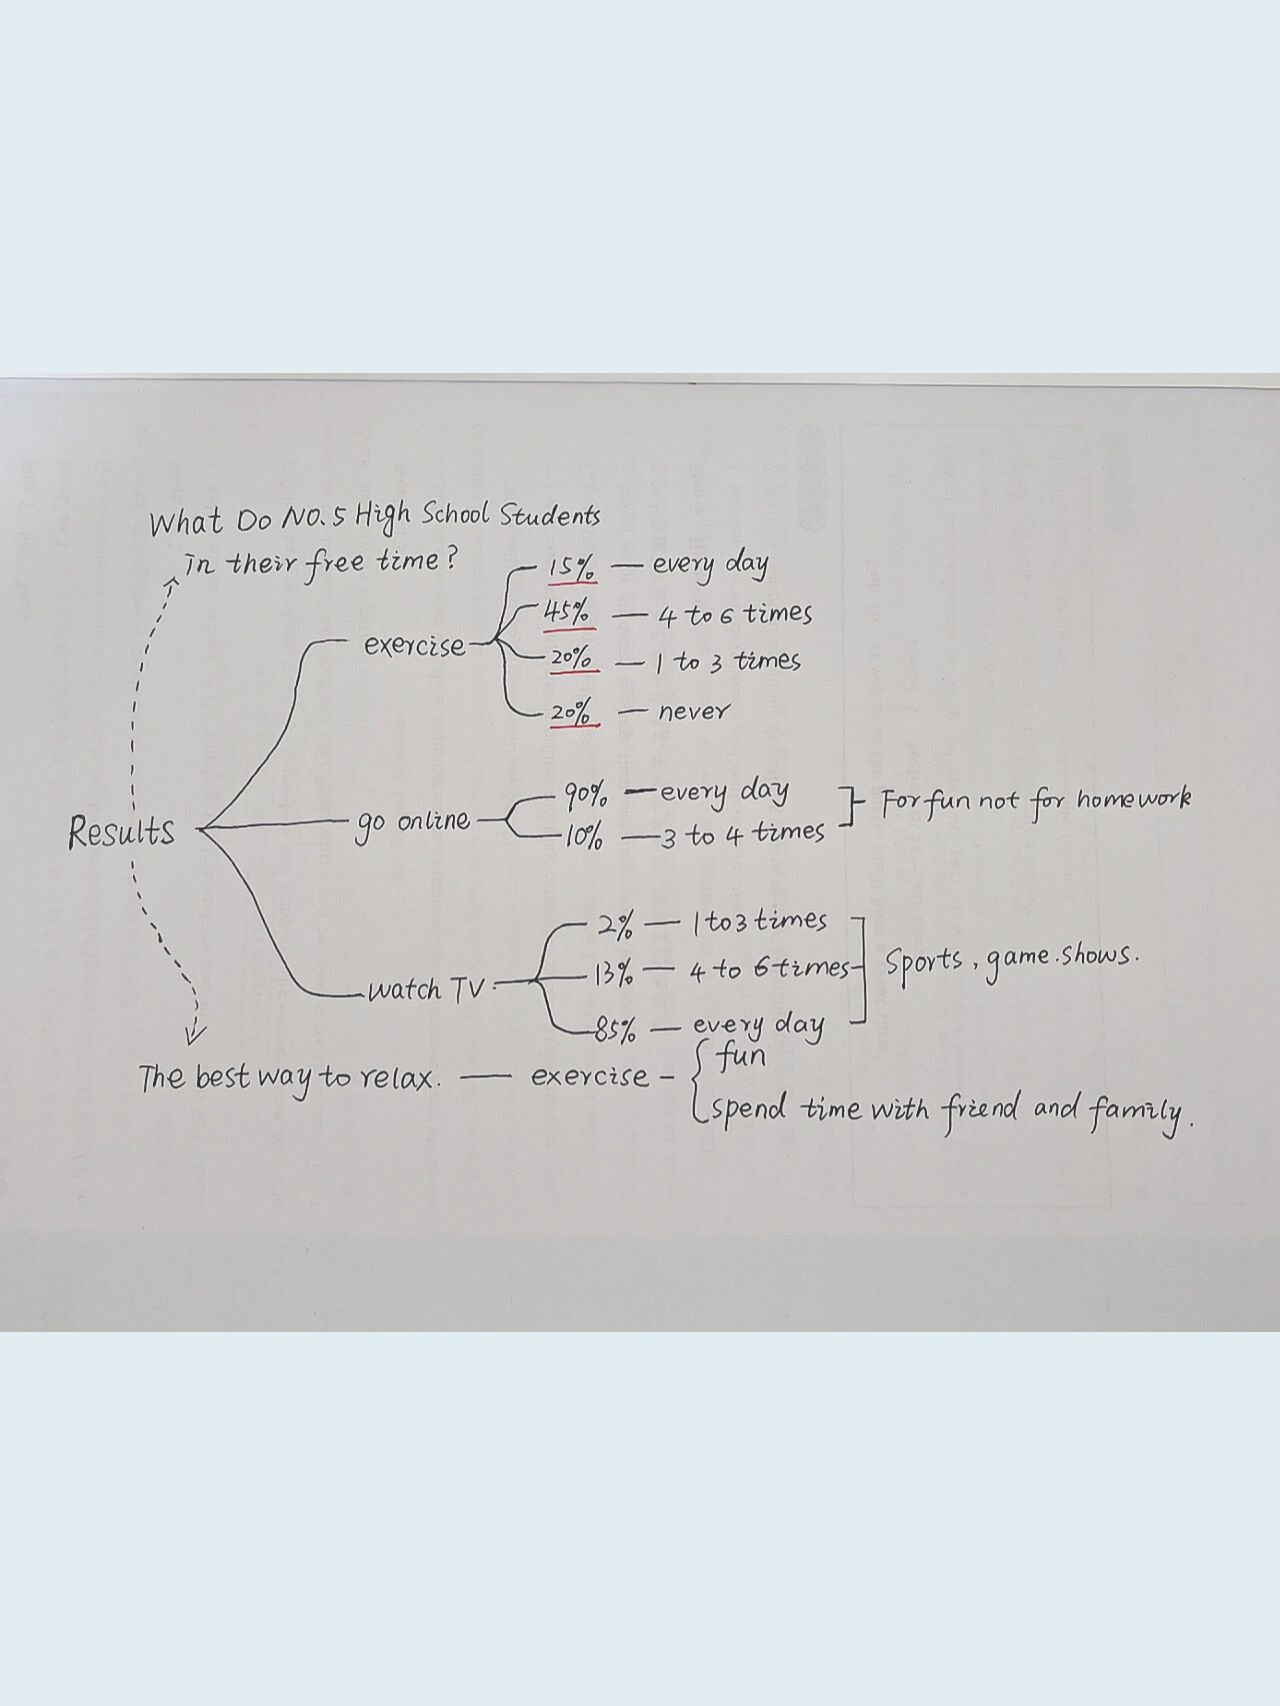 What Do NO.5 High School Students
in their free time?
15% — every day
45% — 4 to 6 times
exercise
20% — 1 to 3 times
20% — never
90% — every day
For fun not for homework
go online
10% — 3 to 4 times
Results
2% — 1 to 3 times
13% — 4 to 6 times
Sports, game.shows.
watch TV.
85% — every day
The best way to relax. — exercise –
fun
spend time with friend and family.